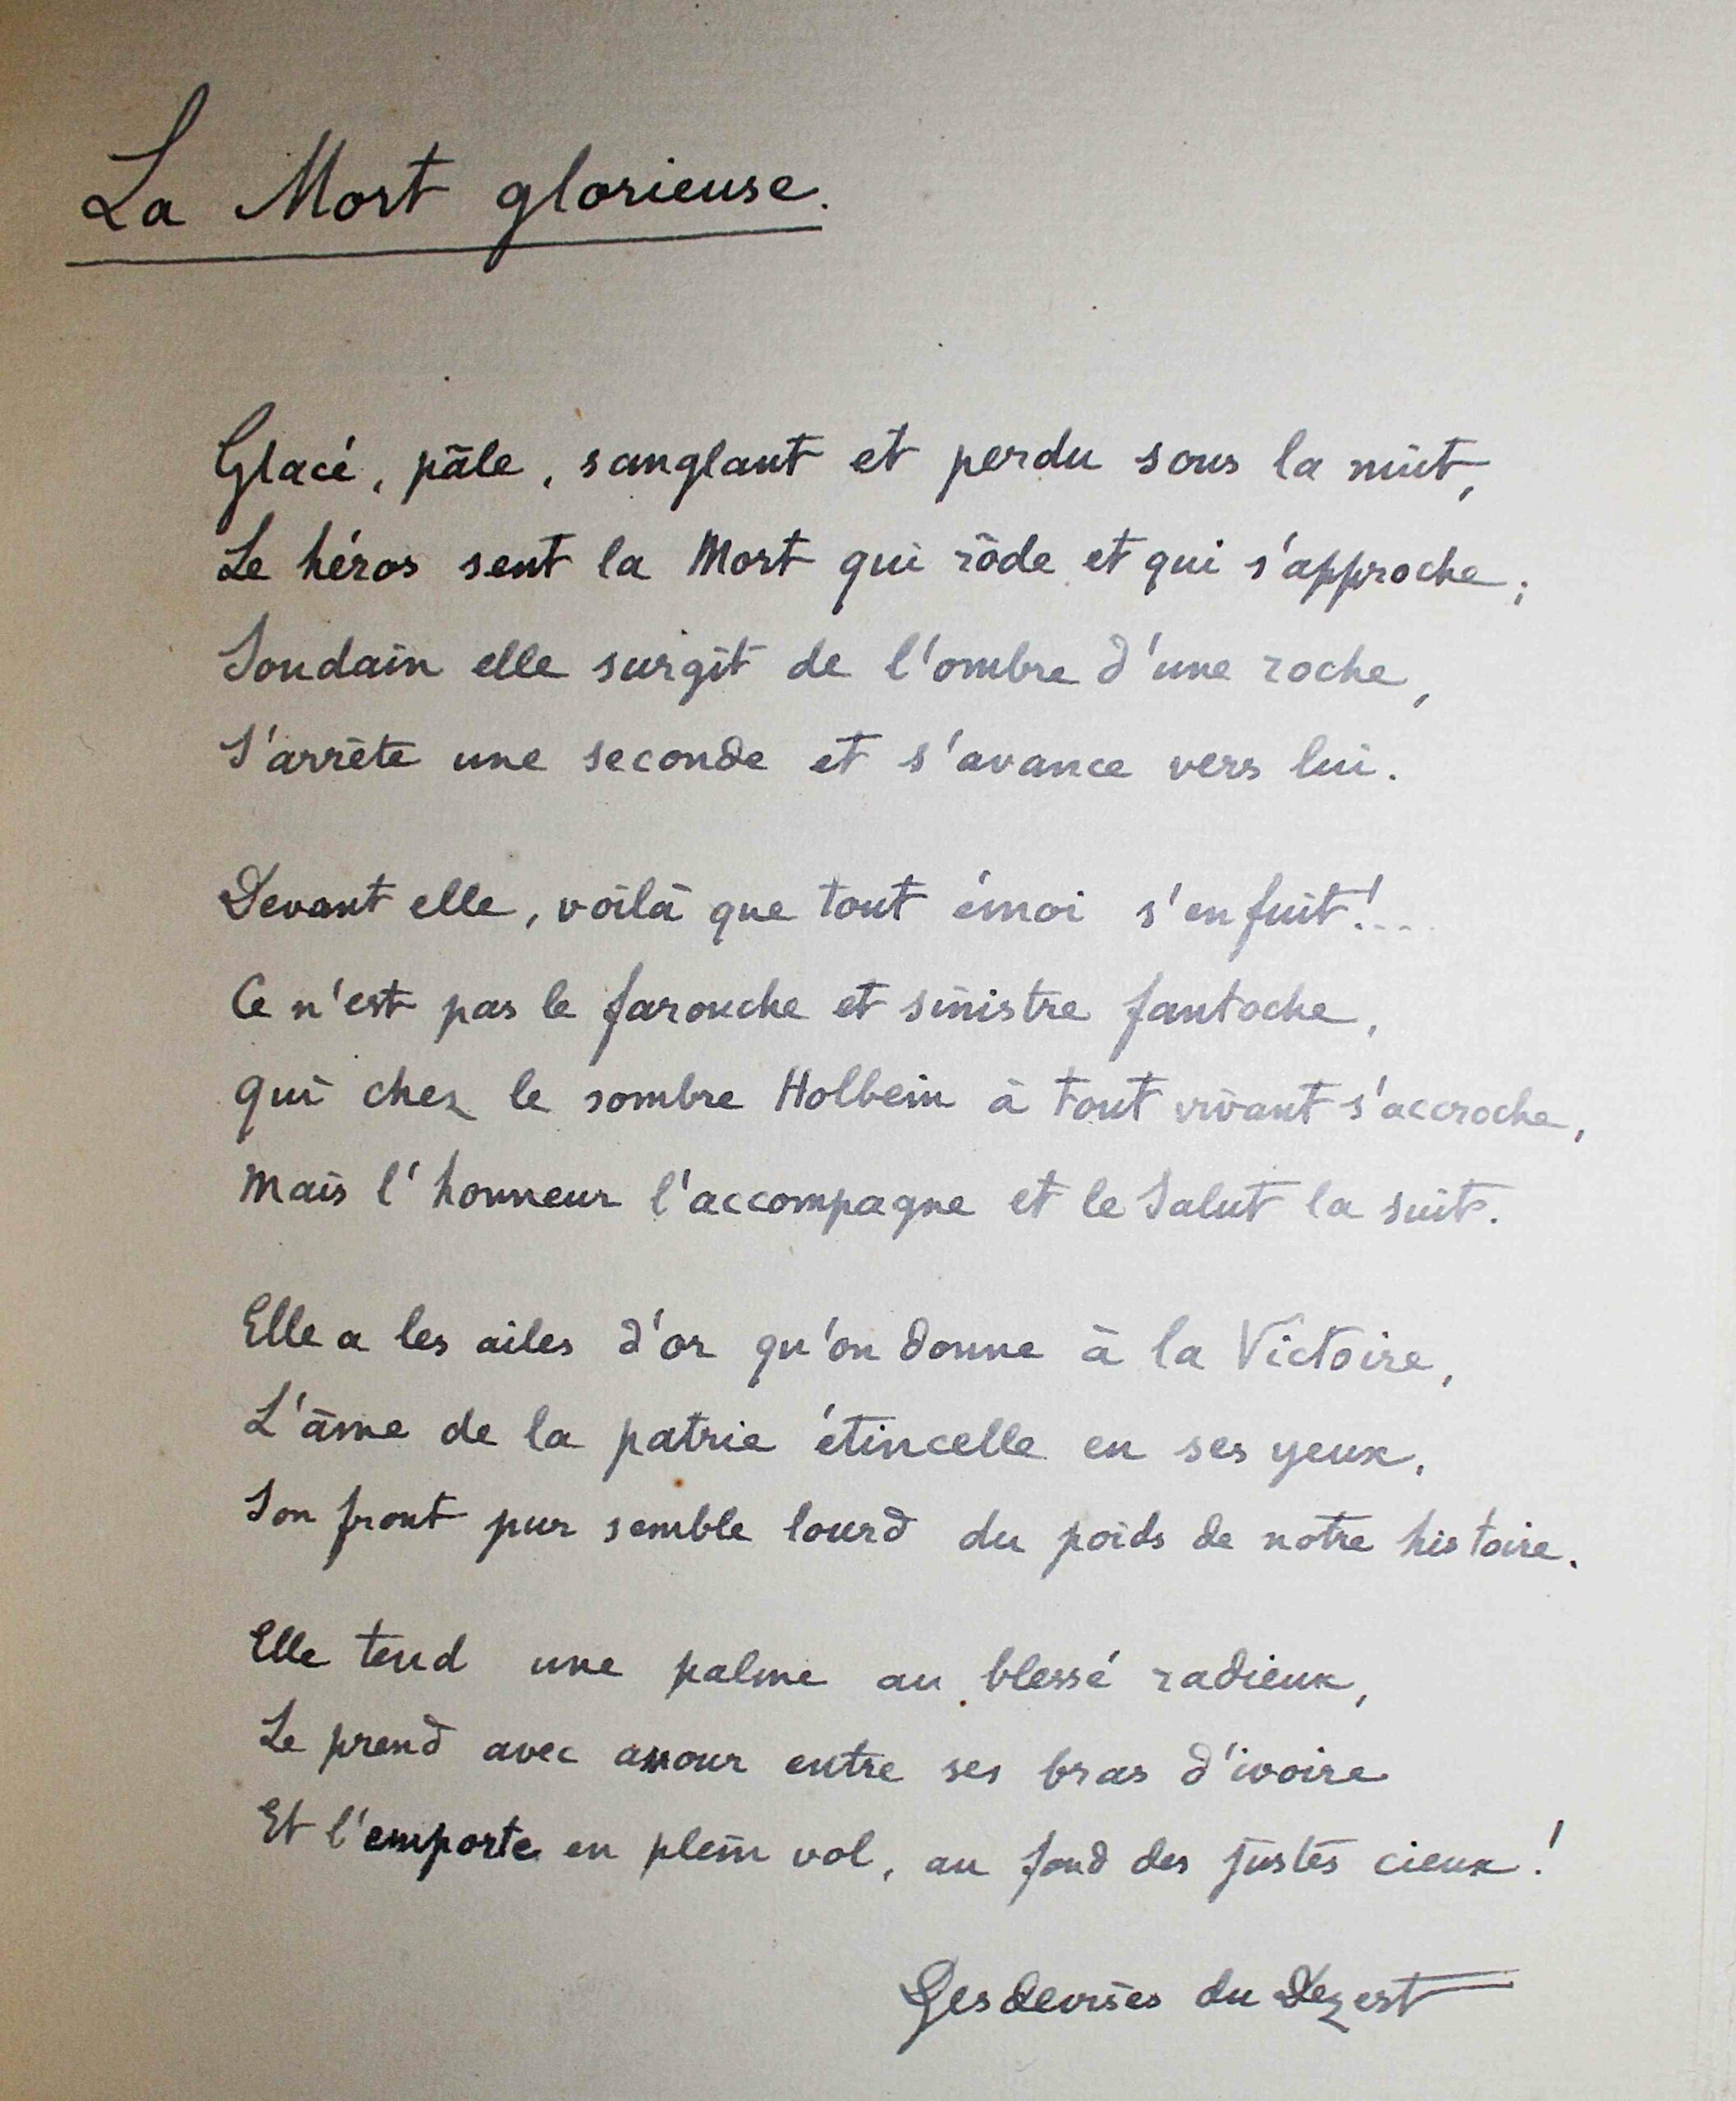 La Mort glorieuse.
Glacé, pâle, sanglant et perdu sous la nuit,
Le héros sent la Mort qui rôde et qui s'approche ;
Soudain elle surgit de l'ombre d'une roche,
S'arrête une seconde et s'avance vers lui.
Devant elle, voilà que tout émoi s'enfuit !...
Ce n'est pas le farouche et sinistre fantoche,
qui chez le sombre Holbein à tout vivant s'accroche,
Mais l'honneur l'accompagne et le Salut la suit.
Elle a les ailes d'or qu'on donne à la Victoire,
L'âme de la patrie étincelle en ses yeux,
Son front pur semble lourd du poids de notre histoire.
Elle tend une palme au blessé radieux,
Le prend avec amour entre ses bras d'ivoire
Et l'emporte en plein vol, au fond des justes cieux !
Desdevises du Dezert